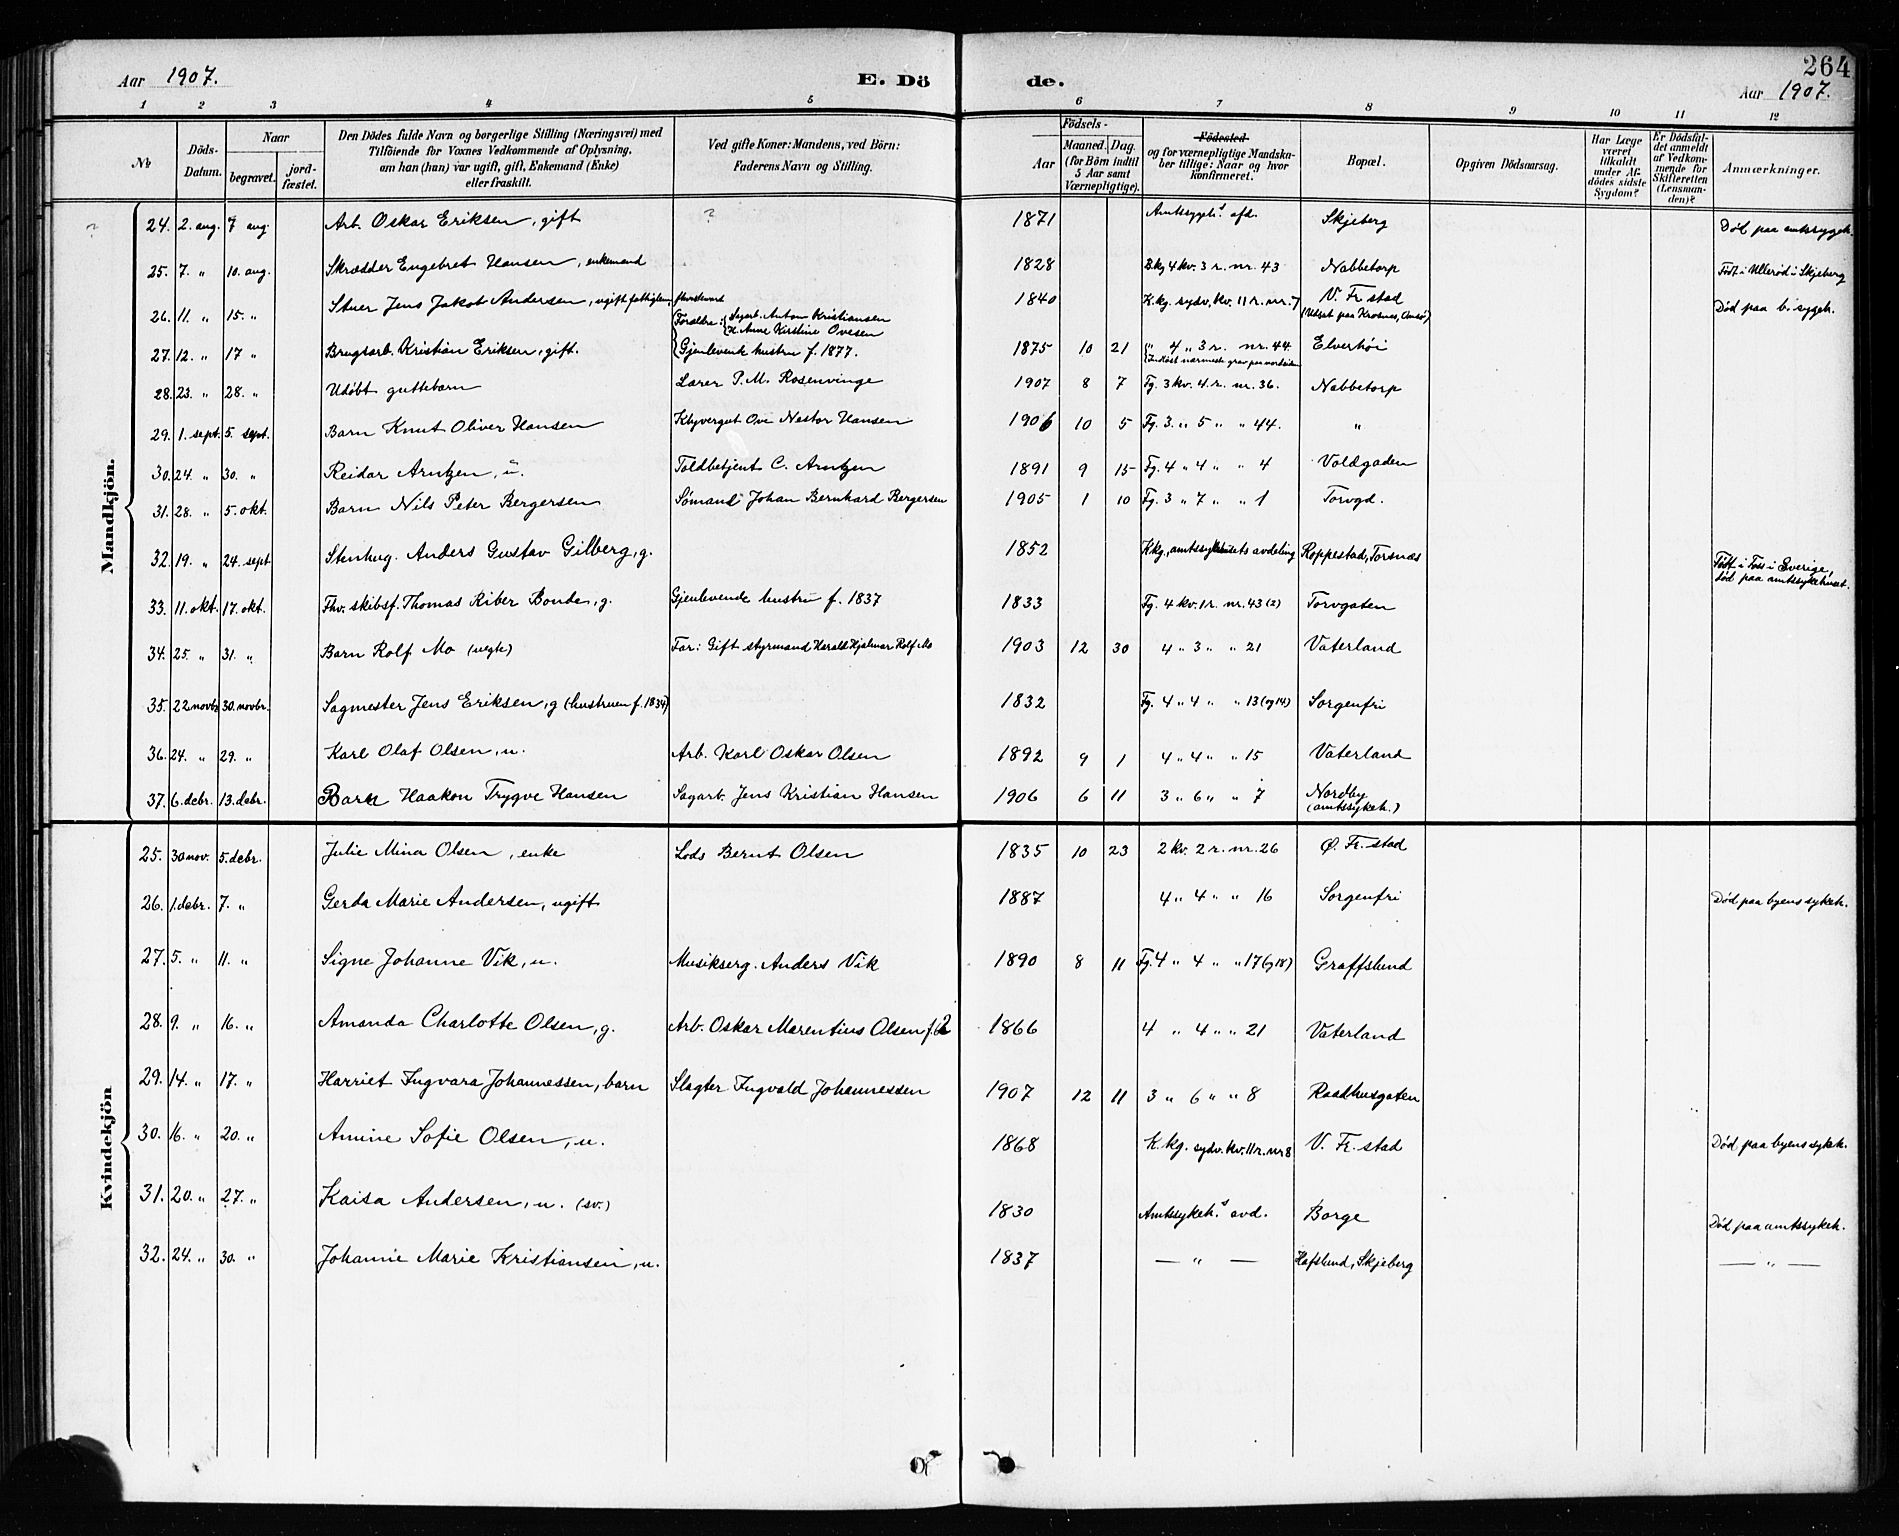 264
Aar 1907. E. Dö de. Aar 1907.
1 2 3 4 5 6 7 8 9 10 11 12
No
Döds-Datum.
Naar
begravet.
jord-fæstet.
Den Dödes fulde Navn og borgerlige Stilling (Næringsvei) med
Tilföiende for Voxnes Vedkommende af Oplysning,
om han (hun) var ugift, gift, Enkemand (Enke)
eller fraskilt.
Ved gifte Koner: Mandens, ved Börn:
Faderens Navn og Stilling.
Födsels-
Aar
Maaned. Dag.
(for Börn indtil
5 Aar samt
Værnepligtige).
Födested
og for værnepligtige Mandska-
ber tillige: Naar og hvor
konfirmeret.
Bopæl.
Opgiven Dödsaarsag.
Har Læge
været
tilkaldt
under Af-
dödes sidste
Sygdom?
Er Dödsfal-
det anmeldt
af Vedkom-
mende for
Skifteretten
(Lensman-
den)?
Anmærkninger.
Mandkjön.
? 24. 2. aug. 7 aug. Arb. Oskar Eriksen, gift ? 1871 Amtssygh.s afd. Skjeberg Död paa amtssygeh.
25. 7. " 10. aug. Skrædder Engebret Hansen, enkemand 1828 B.kg 4 kv. 3 r. nr. 43 Nabbetorp Födt i Ullerød i Skjeberg
26. 11. " 15. " Stuer Jens Jakob Andersen, ugift fattiglem 1840 K.kg. sydv. kv. 11 r. nr. 7 V. Fr.stad Död paa b. sygeh.
Forældre: Sagarb. Anton Kristiansen
H. Anne Kirstine Ovesen
27. 12. " 17 " Brugsarb. Kristian Eriksen, gift. Gjenlevende hustru f. 1877. 1875 10 21 " 4 " 3 r. nr. 44 Elverhöi
28. 23. " 28. " Udöbt guttebarn Lærer P. M. Rosenvinge 1907 8 7 Fg. 3 kv. 4. r. nr. 36. Nabbetorp
29. 1. sept. 5. sept. Barn Knut Oliver Hansen Ove Nestor Hansen 1906 10 5 Fg. 3. " 5 " " 44. "
30. 24 " 30. " Reidar Arntzen, u. Toldbetjent C. Arntzen 1891 9 15 Fg. 4 " 4 " " 4 Voldgaden
31. 28. " 5. okt. Barn Nils Peter Bergersen Sömand Johan Bernhard Bergersen 1905 1 10 Fg. 3 " 7 " " 1 Torvgd.
32. 19. " 24. sept Stenhug. Anders Gustav Gilberg, g. 1852 K.kg., amtssykehusets avdeling Roppestad, Torsnæs Födt i Foss i Sverige,
död paa amtssykehuset.
33. 11. okt. 17. okt. Fhv. skibsf. Thomas Riber Bonde, g. Gjenlevende hustru f. 1837 1833 Fg. 4 kv. 1 r. nr. 43 (2) Torvgaten
34. 25. " 31. " Barn Rolf Mo (uegte) Far: Gift styrmand Harald Hjalmar Rolf Mo 1903 12 30 4 " 3 " " 21 Vaterland
35. 22 novbr 30. novbr. Sagmester Jens Eriksen, g (hustruen f. 1834) 1832 Fg. 4 " 4 " " 13 (og 14) Sorgenfri
36. 24. " 29. " Karl Olaf Olsen, u. Arb. Karl Oskar Olsen 1892 9 1 4 " 4 " " 15 Vaterland
37. 6. debr. 13. debr. Barn Haakon Trygve Hansen Sagarb. Jens Kristian Hansen 1906 6 11 3 " 6 " " 7 Nordby
(amtssykeh.)
Kvindekjön
25. 30 nov. 5. debr. Julie Mina Olsen, enke Lods Bernt Olsen 1835 10 23 2 kv. 2 r. nr. 26 Ø. Fr.stad
26. 1. debr. 7. " Gerda Marie Andersen, ugift 1887 4 " 4 " " 16 Sorgenfri Död paa byens sykeh.
27. 5. " 11. " Signe Johanne Vik, u. Musikserg. Anders Vik 1890 8 11 Fg. 4 " 4 " " 17 (og 18) Graffslund
28. 9. " 16. " Amanda Charlotte Olsen, g. Arb. Oskar Marentius Olsen f. 62 1866 4 " 4 " " 21 Vaterland
29. 14. " 17. " Harriet Ingvara Johannessen, barn Slagter Ingvald Johannessen 1907 12 11 3 " 6 " " 8 Raadhusgaten
30. 16. " 20. " Amine Sofie Olsen, u. 1868 K.kg. sydv. kv. 11 r. nr 8 V. Fr.stad Död paa byens sykeh.
31. 20. " 27. " Kaisa Andersen, u. (sv.) 1830 Amtssykeh.s avd. Borge Död paa amtssykeh.
32. 24. " 30. " Johanne Marie Kristiansen, u. 1837 — " — Hafslund, Skjeberg — " —